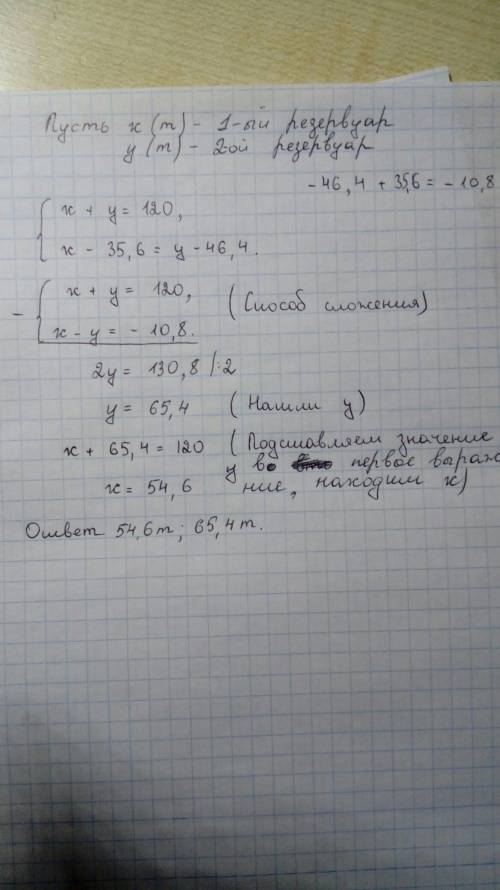 Пусть x (т) - 1-ый резервуар
y (т) - 2ой резервуар
- 46,4 + 35,6 = - 10,8
x + y = 120,
x - 35,6 = y - 46,4.
- x + y = 120, (Способ сложения)
x - y = - 10,8.
2y = 130,8 /:2
y = 65,4 (Нашли y)
x + 65,4 = 120 (Подставляем значение
y во первое выраже
x = 54,6 ние, находим x)
Ответ 54,6т; 65,4т.